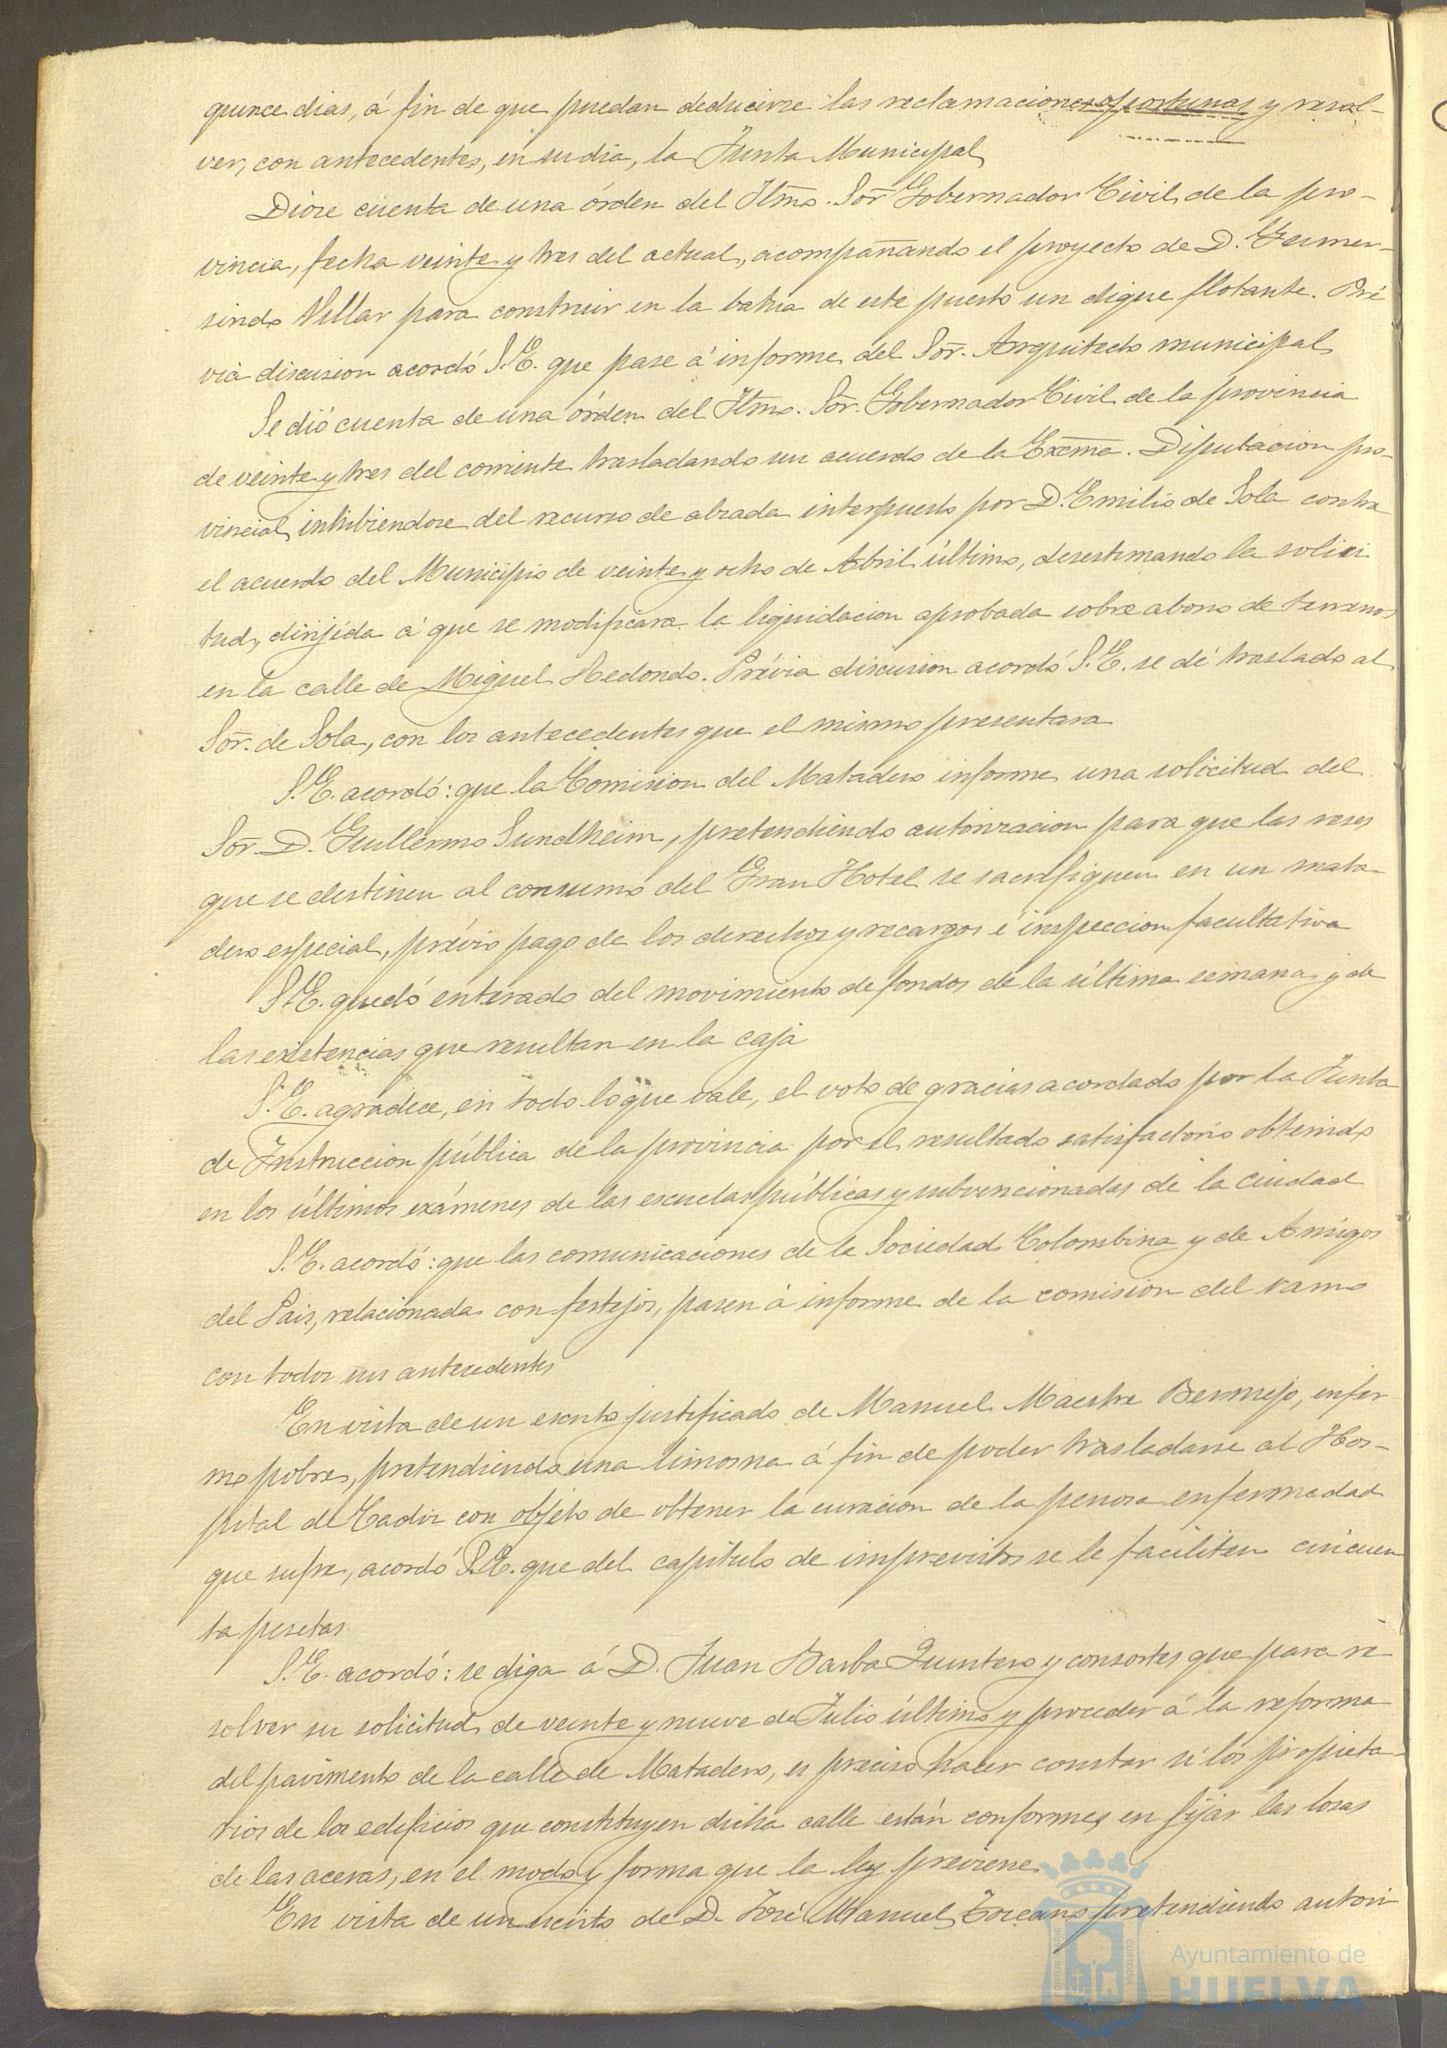 quince dias, á fin de que puedan deducirse las reclamaciones oportunas y resol-
ver, con antecedentes, en su dia, la Junta Municipal
Diose cuenta de una órden del Iltmo. Sor. Gobernador Civil de la pro-
vincia, fecha veinte y tres del actual, acompañando el proyecto de D. Gumer-
sindo Villar para construir en la bahia de este puerto un dique flotante. Pré
via discusion acordó S.E. que pase á informe del Sor. Arquitecto municipal
Se dió cuenta de una órden del Iltmo. Sor. Gobernador Civil de la provincia
de veinte y tres del corriente trasladando un acuerdo de la Excma. Diputacion pro-
vincial, inhibiendose del recurso de alzada interpuesto por D. Emilio de Sola contra
el acuerdo del Municipio de veinte y ocho de Abril último, desestimando la solici
tud, dirijida á que se modificara la liquidacion aprobada sobre abono de terrenos
en la calle de Miguel Redondo. Prévia discusion acordó S.E. se dé traslado al
Sor. de Sola, con los antecedentes que el mismo presentara
S.E. acordó: que la Comision del Matadero informe una solicitud del
Sor. D. Guillermo Sundheim, pretendiendo autorizacion para que las reses
que se destinen al consumo del Gran Hotel se sacrifiquen en un mata
dero especial, prévio pago de los derechos y recargos é inspeccion facultativa
S.E. quedó enterado del movimiento de fondos de la última semana y de
las existencias que resultan en la caja
S.E. agradece, en todo lo que vale, el voto de gracias acordado por la Junta
de Instruccion pública de la provincia por el resultado satisfactorio obtenido
en los últimos exámenes de las escuelas públicas y subvencionadas de la Ciudad
S.E. acordó: que las comunicaciones de la Sociedad Colombina y de Amigos
del Pais, relacionadas con festejos, pasen á informe de la comision del ramo
con todos sus antecedentes
En vista de un escrito justificado de Manuel Maestre Bermejo, enfer
mo pobre, pretendiendo una limosna á fin de poder trasladarse al Hos-
pital de Cadiz con objeto de obtener la curacion de la penosa enfermedad
que sufre, acordó S.E. que del capítulo de imprevistos se le faciliten cincuen
ta pesetas
S.E. acordó: se diga á D. Juan Barba Quintero y consortes que para re
solver su solicitud de veinte y nueve de Julio último y proceder á la reforma
del pavimento de la calle de Matadero, es preciso hacer constar si los propieta-
rios de los edificios que constituyen dicha calle están conformes en fijar las losas
de las aceras, en el modo y forma que la ley previene
En vista de un escrito de D. José Manuel Toscano pretendiendo autori
Ayuntamiento de
HUELVA